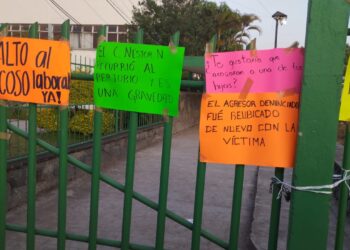 ALTO al
ACOSO laboral
YA!
EL C. NESTOR N
INCURRIÓ AL
PERJURIO Y ES
UNA GRAVEDAD
¿Te gustaría que
acosaran a una de tus
hijas?
EL AGRESOR DENUNCIADO
FUÉ REUBICADO
DE NUEVO CON LA
VICTIMA